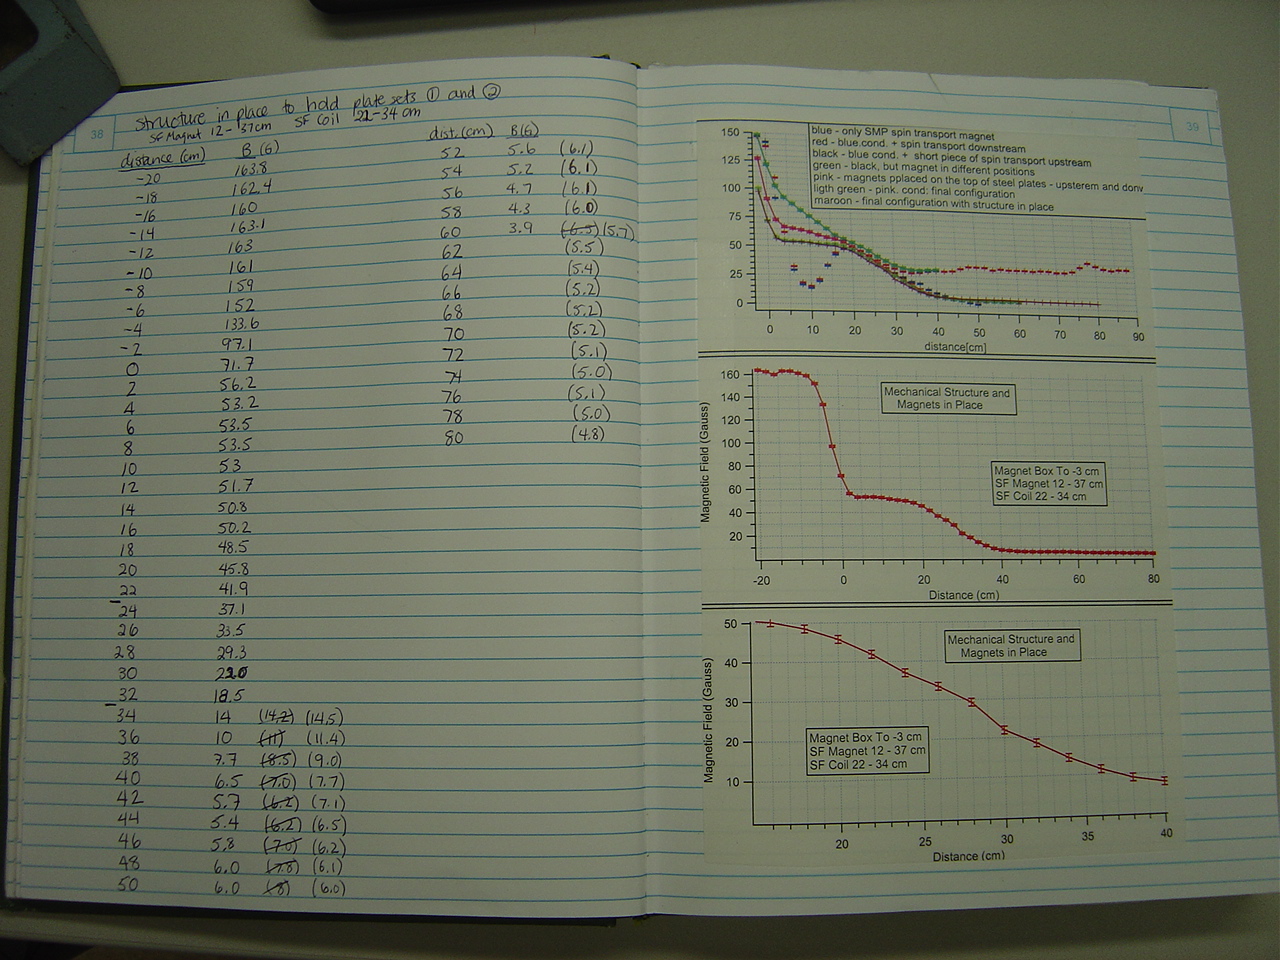 38
Structure in place to hold plate sets ① and ②
SF Magnet 12 - 37cm SF Coil 22-34 cm
distance (cm) B (G)
-20 163.8
-18 162.4
-16 160
-14 163.1
-12 163
-10 161
-8 159
-6 152
-4 133.6
-2 97.1
0 71.7
2 56.2
4 53.2
6 53.5
8 53.5
10 53
12 51.7
14 50.8
16 50.2
18 48.5
20 45.8
22 41.9
24 37.1
26 33.5
28 29.3
30
32 18.5
34 14 (14.2) (14.5)
36 10 (11) (11.4)
38 7.7 (8.5) (9.0)
40 6.5 (7.0) (7.7)
42 5.7 (6.2) (7.1)
44 5.4 (6.2) (6.5)
46 5.8 (7.0) (6.2)
48 6.0 (7.8) (6.1)
50 6.0 (8) (6.0)
dist. (cm) B(G)
52 5.6 (6.1)
54 5.2 (6.1)
56 4.7 (6.1)
58 4.3 (6.0)
60 3.9 (6.5) (5.7)
62 (5.5)
64 (5.4)
66 (5.2)
68 (5.2)
70 (5.2)
72 (5.1)
74 (5.0)
76 (5.1)
78 (5.0)
80 (4.8)
39
150
125
100
75
50
25
0
blue - only SMP spin transport magnet
red - blue.cond. + spin transport downstream
black - blue cond. + short piece of spin transport upstream
green - black, but magnet in different positions
pink - magnets pplaced on the top of steel plates - upsterem and donv
ligth green - pink. cond: final configuration
maroon - final configuration with structure in place
0 10 20 30 40 50 60 70 80 90
distance[cm]
Magnetic Field (Gauss)
160
140
120
100
80
60
40
20
Mechanical Structure and
Magnets in Place
Magnet Box To -3 cm
SF Magnet 12 - 37 cm
SF Coil 22 - 34 cm
-20 0 20 40 60 80
Distance (cm)
Magnetic Field (Gauss)
50
40
30
20
10
Mechanical Structure and
Magnets in Place
Magnet Box To -3 cm
SF Magnet 12 - 37 cm
SF Coil 22 - 34 cm
20 25 30 35 40
Distance (cm)